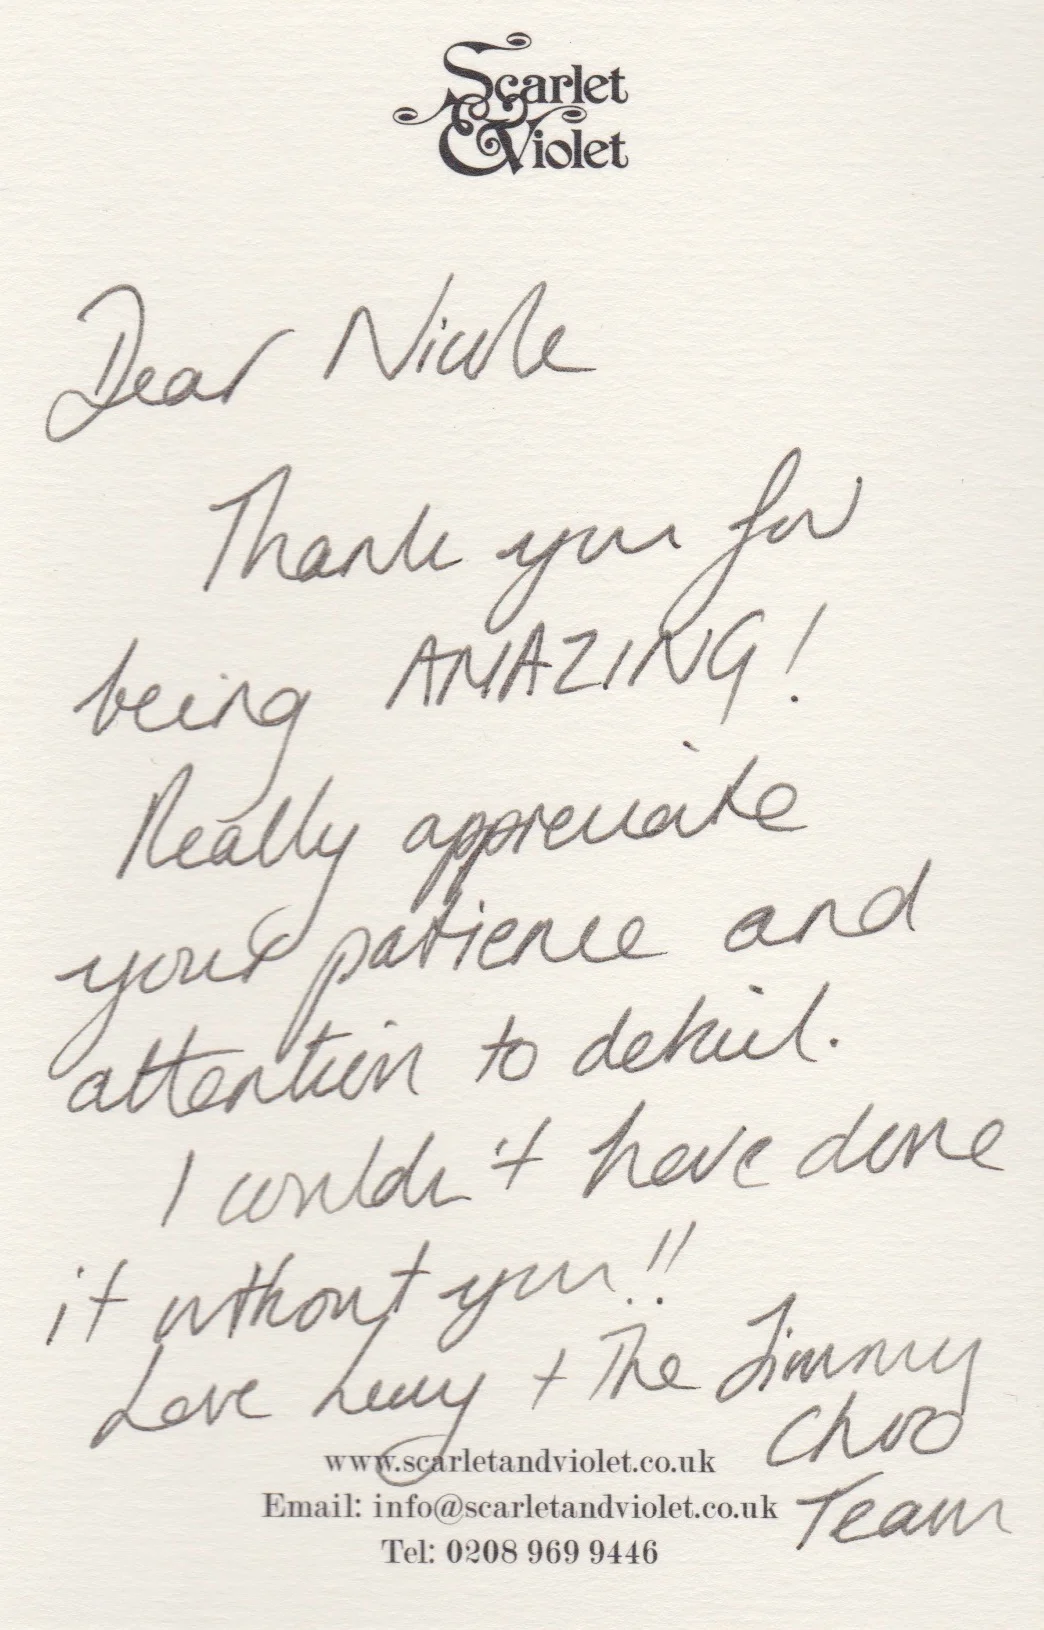 Scarlet
& Violet
Dear Nicole
Thank you for
being AMAZING!
Really appreciate
your patience and
attention to detail.
I couldn't have done
it without you!!
Love Lucy + The Jimmy
Choo
www.scarletandviolet.co.uk
Email: info@scarletandviolet.co.uk
Team
Tel: 0208 969 9446